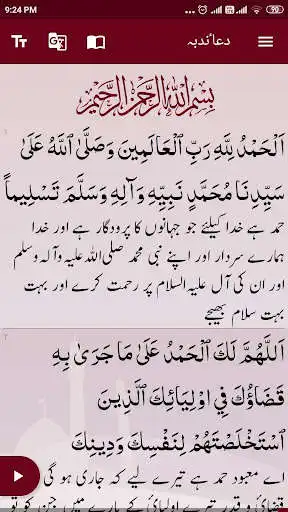 9:24 PM
دعا ندبہ
بِسْمِ اللهِ الرَّحْمٰنِ الرَّحِيْمِ
اَلْحَمْدُ لِلّهِ رَبِّ الْعَالَمِينَ وَصَلَّى ٱللَّهُ عَلَىٰ
سَيِّدِنَا مُحَمَّدٍ نَبِيِّهِ وَآلِهِ وَسَلَّمَ تَسْلِيماً
حمد ہے خدا کیلئے جو جہانوں کا پروردگار ہے اور خدا
ہمارے سردار اور اپنے نبی محمد صلی‌اللہ علیہ‌وآلہ وسلم
اور ان کی آل علیہ‌السلام پر رحمت کرے اور بہت
بہت سلام بھیجے
اَللَّهُمَّ لَكَ ٱلْحَمْدُ عَلَىٰ مَا جَرَىٰ بِهِ
قَضَاؤُكَ فِي اوْلِيَائِكَ ٱلَّذِينَ
ٱسْتَخْلَصْتَهُمْ لِنَفْسِكَ وَدِينِكَ
اے معبود حمد ہے تیرے لیے کہ جاری ہو گی
قضائ و قدر تیرے اولیائ کے بارے میں جن کو تو